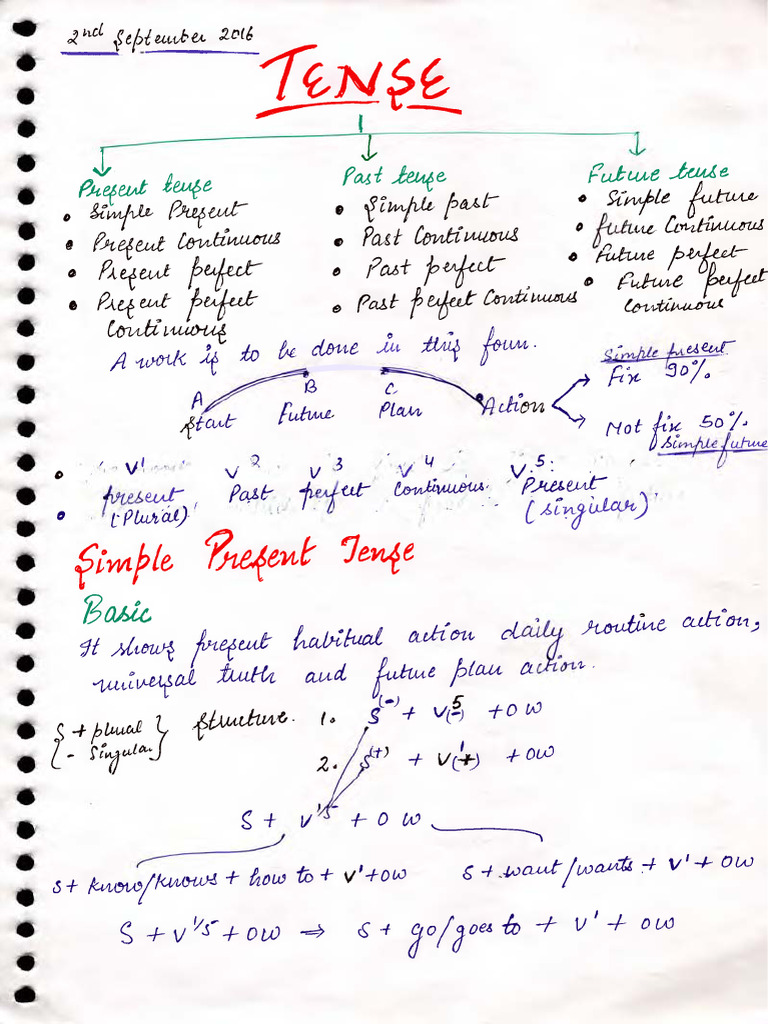 2nd September 2016
TENSE
Present tense
• Simple Present
• Present Continuous
• Present perfect
• Present perfect
Continuous
Past tense
• Simple past
• Past Continuous
• Past perfect
• Past perfect Continuous
Future tense
• Simple future
• future Continuous
• Future perfect
• Future perfect
continuous
A work is to be done in this foun.
A B C
Start Future Plan Action
Simple present
Fix 90%
Not fix 50%
Simple future
• V1 V2 V3 V4 V5
present Past perfect Continuous Present
• (Plural) (singular)
Simple Present Tense
Basic
It shows present habitual action daily routine action,
universal truth and future plan action.
{ S + plural } Structure. 1. S(-) + V5(-) + OW
{ - Singular } 2. S(+) + V1(+) + OW
S + V1/5 + OW
S + know/knows + how to + V1 + OW
S + want/wants + V1 + OW
S + V1/5 + OW ⇒ S + go/goes to + V1 + OW